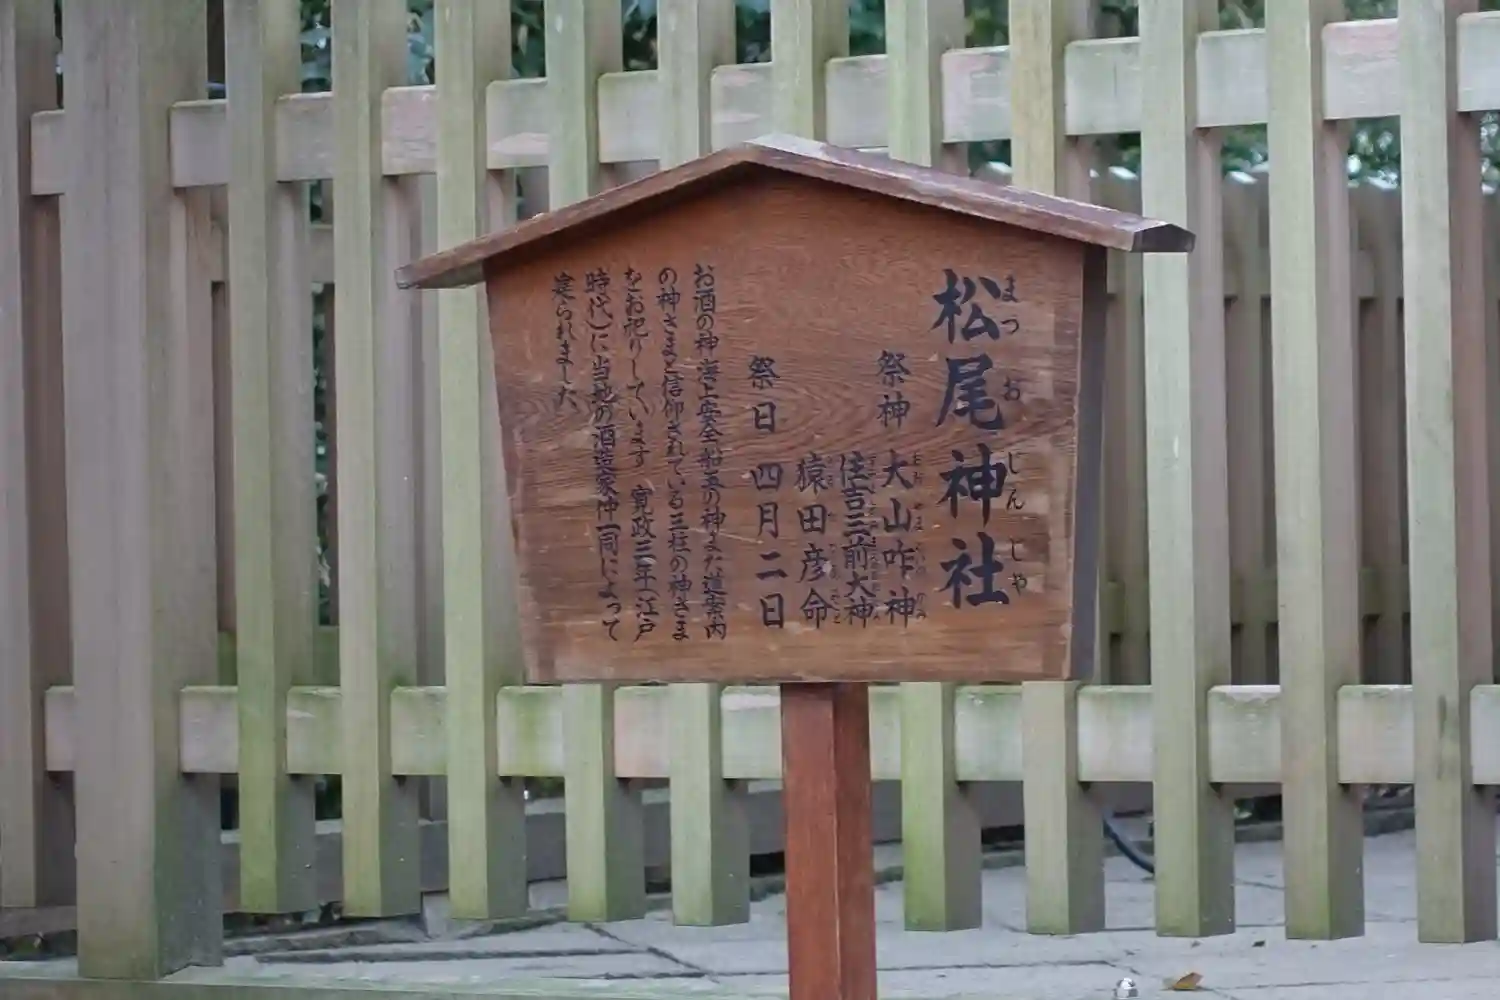 松尾神社
まつおしんじゃ
祭神 大山咋神
住吉三前大神
猿田彦命
祭日 四月二日
お酒の神 海上安全 船玉の神 また道案内
の神さまと信仰されている三柱の神さま
をお祀りしています 寛政三年(江戸
時代)に当地の酒造家仲間一同によって
建られました